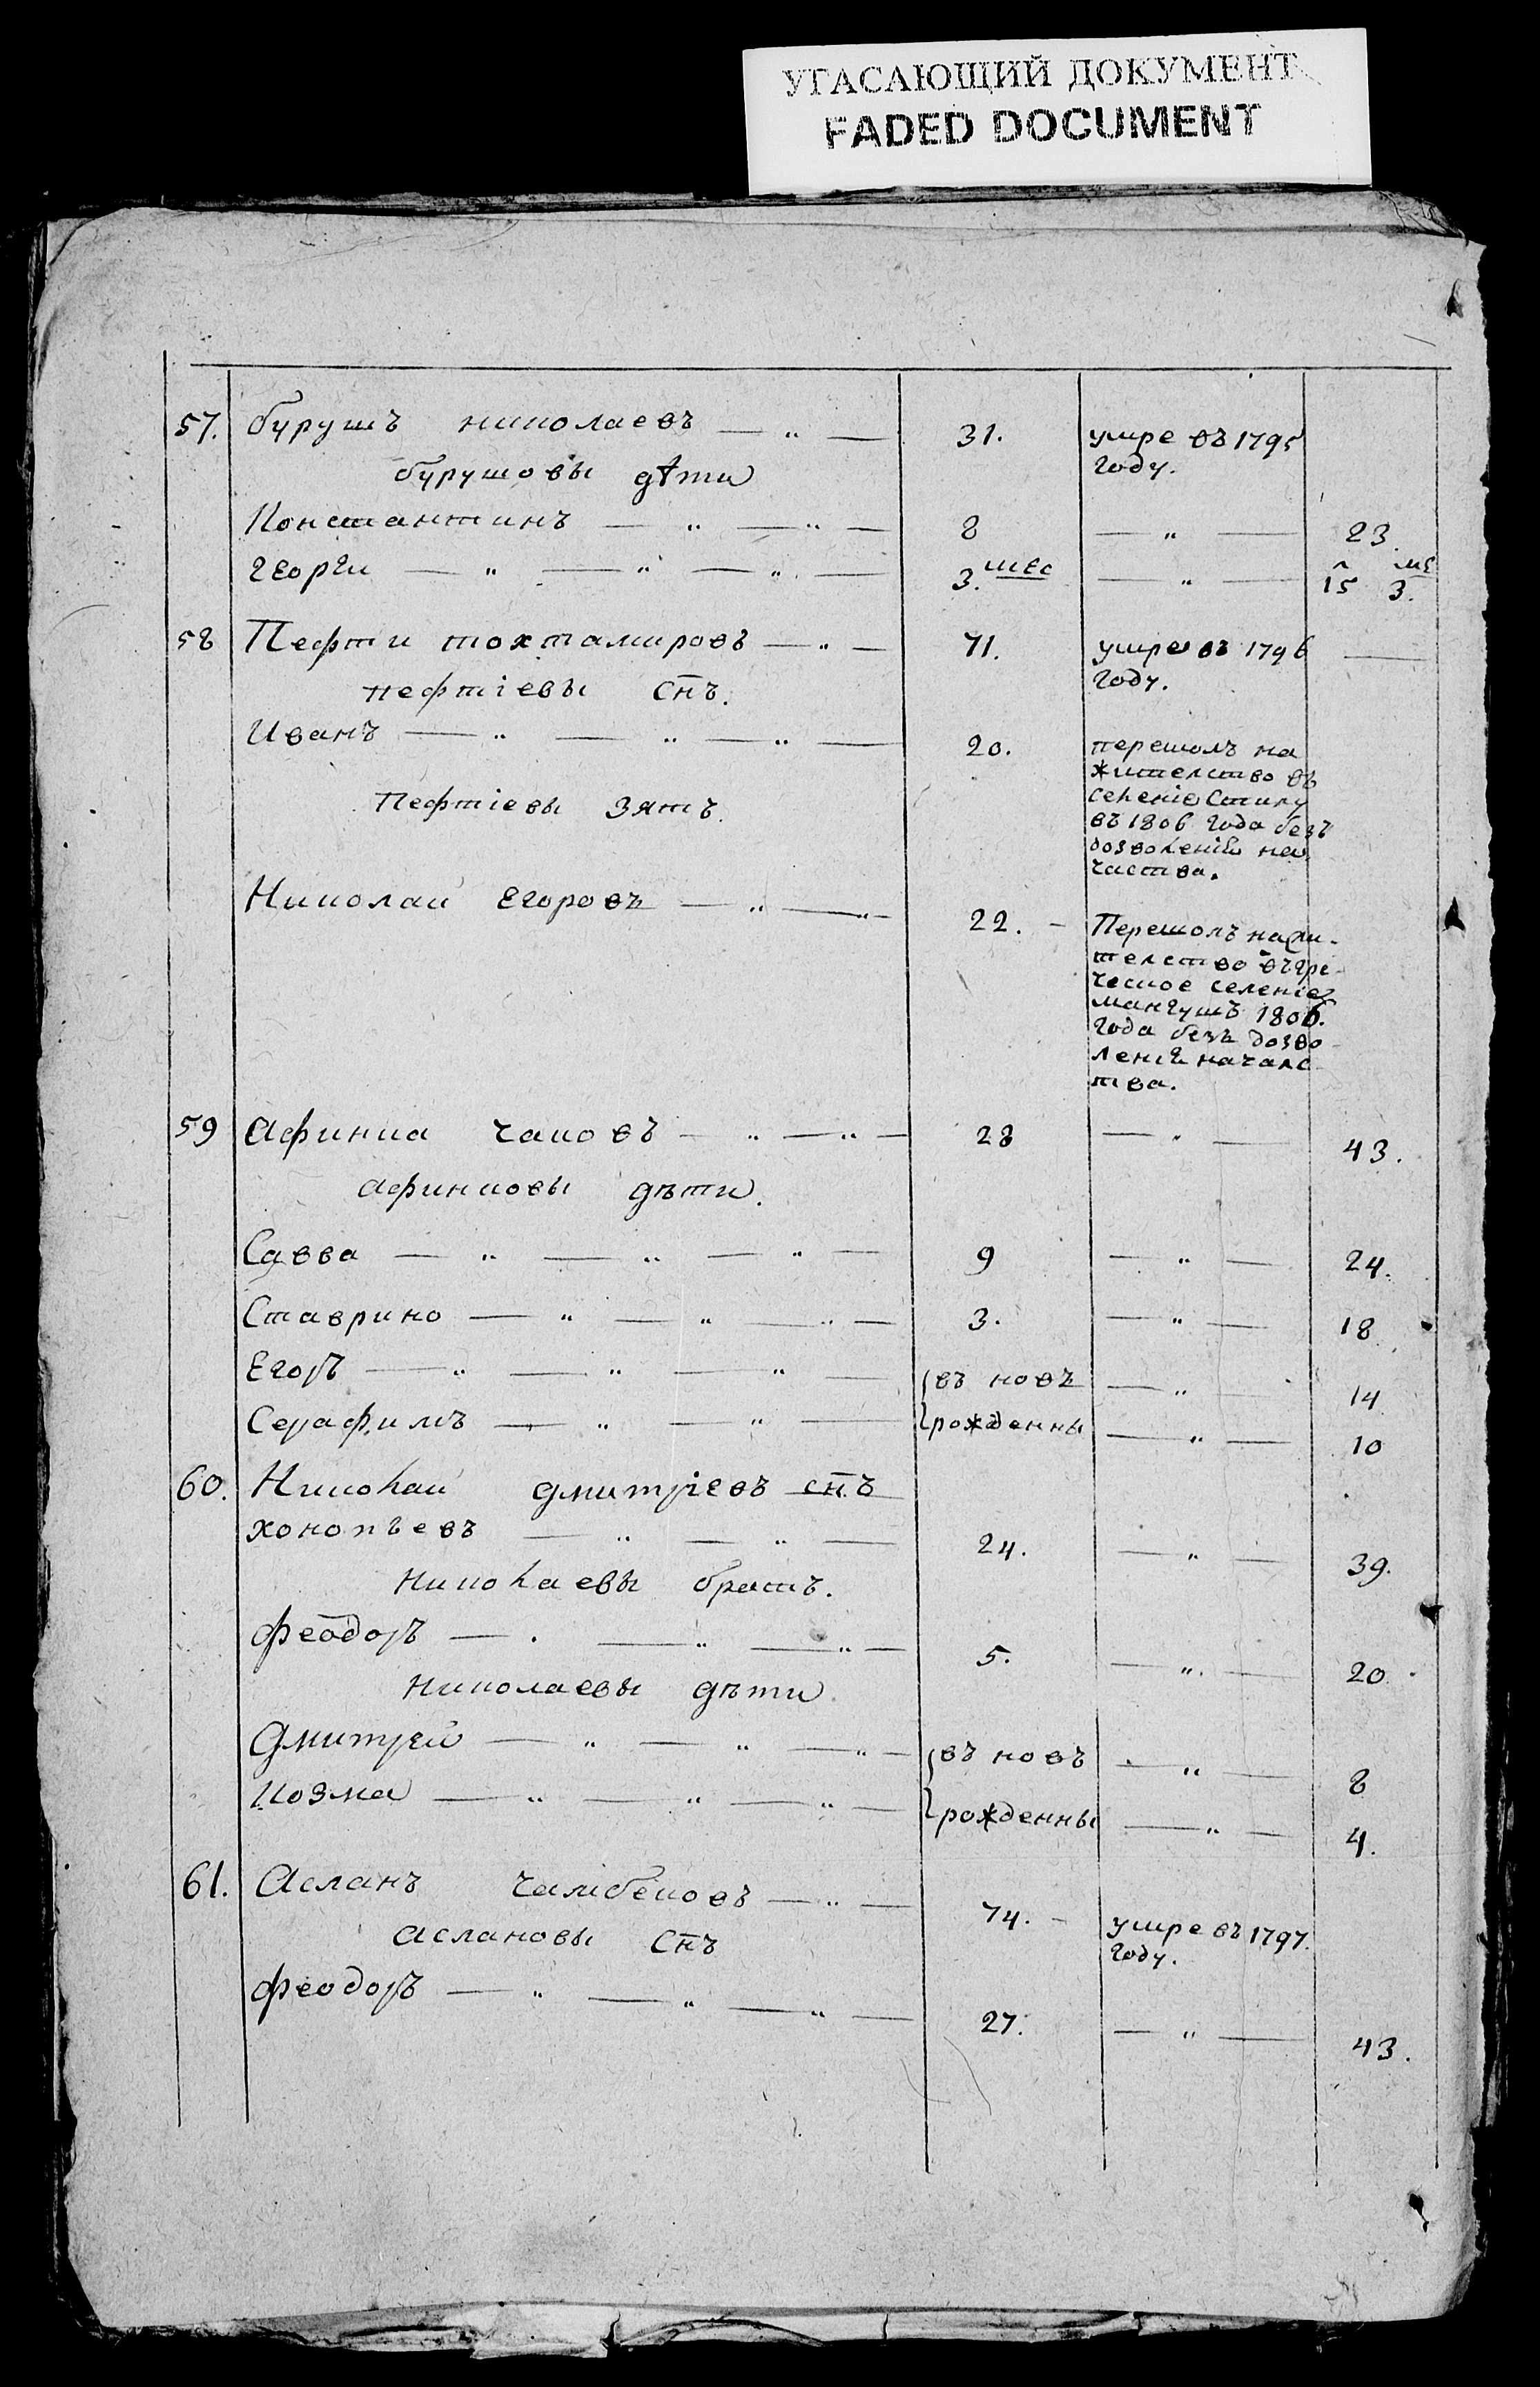 УГАСАЮЩИЙ ДОКУМЕНТ
FADED DOCUMENT
57. бурушъ николаевъ — „ — 31. умре въ 1795
году.
бурушовы дѣти
Константинъ — „ — „ — 8 — „ — 23
георги — „ — „ — „ — 3. мес — „ — 15 3. ме
58 Пефти тохтамировъ — „ — 71. умре въ 1796 —
году.
пефтіевы снъ.
Иванъ — „ — „ — „ — 20. перешолъ на
жителство въ
селеніе Стилу
въ 1806 года безъ
дозволеній нач
частва.
Пефтіевы зятъ.
Николай Егоровъ — „ — „ — 22. — Перешолъ нажи-
телство въ гре-
ческое селеніе
мангушъ 1806.
года безъ дозво-
леній началс-
тва.
59 Афинка чаковъ — „ — „ — 28 — „ — 43.
афинковы дѣти.
Савва — „ — „ — „ — 9 — „ — 24.
Ставрино — „ — „ — „ — 3. — „ — 18
Егоръ — „ — „ — „ — въ новъ — „ — 14
Серафимъ — „ — „ — рожденны — „ — 10
60. Николай дмитріевъ снъ
хонопъевъ — „ — „ — 24. — „ — 39.
николаевы братъ.
феодоръ — . — „ — „ — 5. — „ — 20.
николаевы дѣти
Дмитрей — „ — „ — „ — въ новъ — „ — 8
Козма — „ — „ — „ — рожденны — „ — 4.
61. Асланъ чалібековъ — „ — 74. — умре въ 1797.
году.
аслановы снъ
феодоръ — „ — „ — „ — 27. — „ — 43.